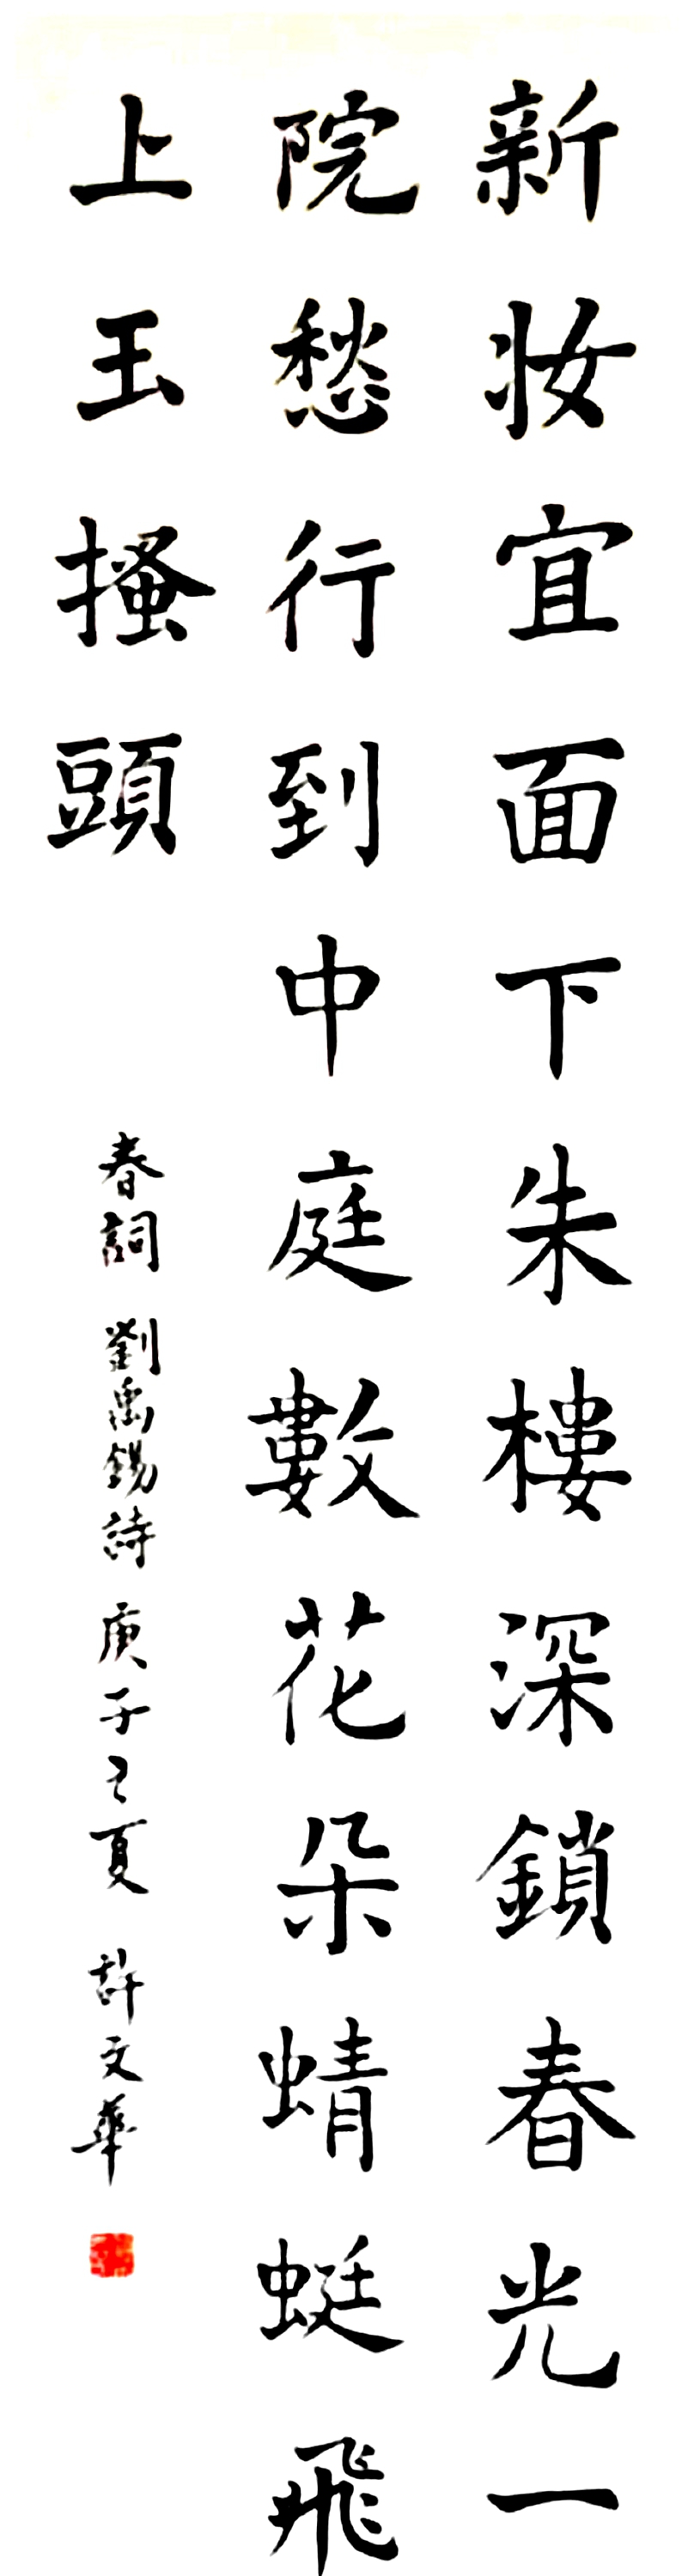 新妝宜面下朱樓深鎖春光一
院愁行到中庭數花朵蜻蜓飛
上玉搔頭
春詞 劉禹錫詩 庚子之夏 許文華